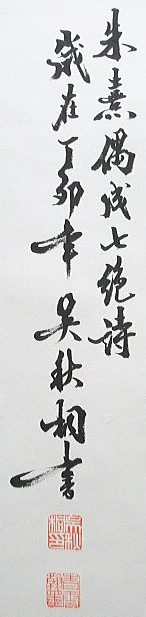 朱熹偶成七绝诗
岁在丁卯年吴秋桐书